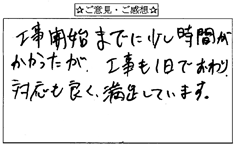 ☆ご意見・ご感想☆
工事開始までに少し時間が
かかったが、工事も1日でおわり、
対応も良く、満足しています。